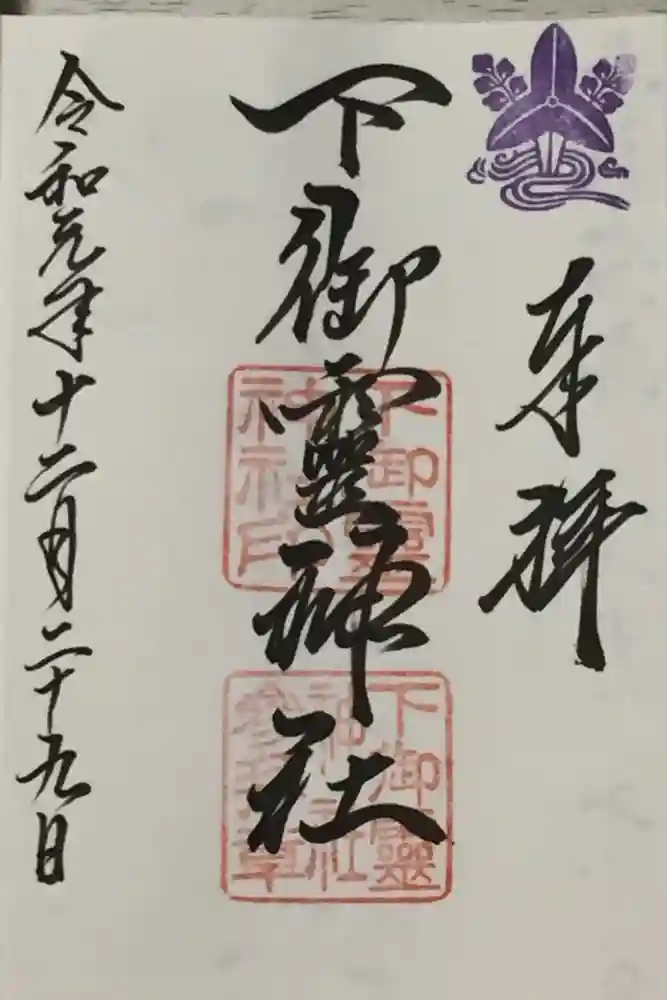 奉拝
下御靈神社
令和元年十二月二十九日
下御靈
神社印
下御靈
神社
参拝章